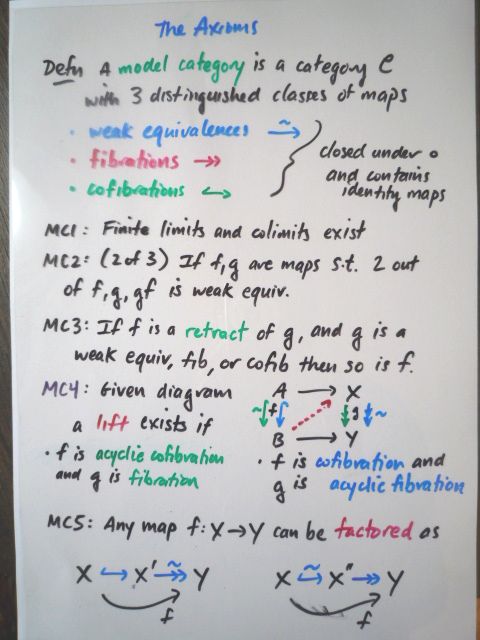 The Axioms
Defn A model category is a category C
with 3 distinguished classes of maps
• weak equivalences ⥲
• fibrations ↠
• cofibrations ↪
closed under ∘
and contains
identity maps
MC1: Finite limits and colimits exist
MC2: (2 of 3) If f,g are maps s.t. 2 out
of f,g,gf is weak equiv.
MC3: If f is a retract of g, and g is a
weak equiv, fib, or cofib then so is f.
MC4: Given diagram
a lift exists if
• f is acyclic cofibration
and g is fibration
A → X
~ f g ~
B → Y
• f is cofibration and
g is acyclic fibration
MC5: Any map f: X → Y can be factored as
X ↪ X' ~↠ Y
f
X ~↪ X" ↠ Y
f